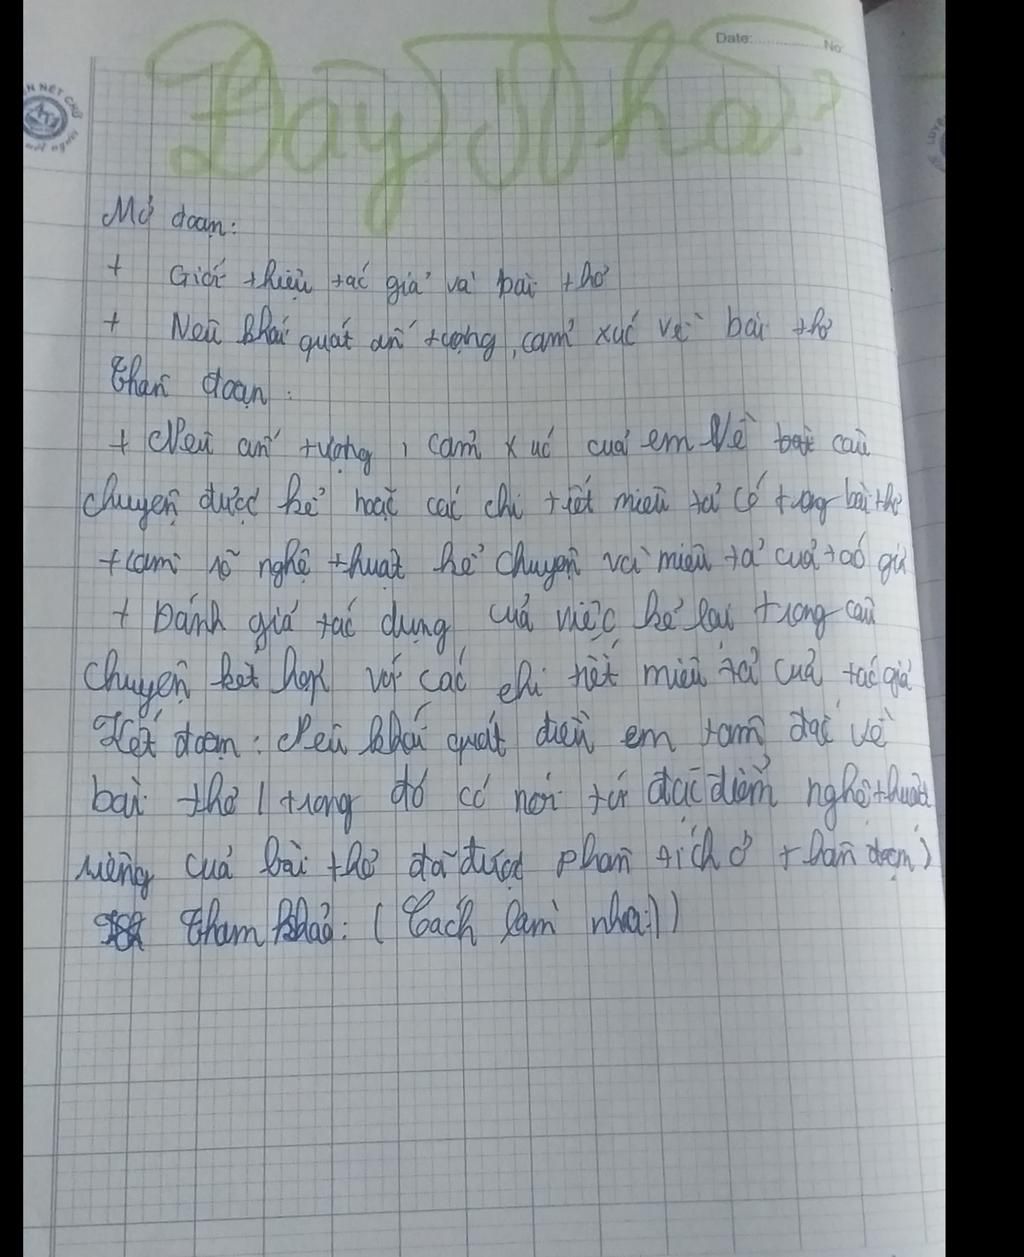 Đây Nha
Date: No
Mở đoạn:
+ Giới thiệu tác giả và bài thơ
+ Nêu khái quát ấn tượng, cảm xúc về bài thơ
Thân đoạn.
+ Nêu ấn tượng, cảm xúc của em về câu
chuyện được kể hoặc các chi tiết miêu tả có trong bài thơ
+ Làm rõ nghệ thuật kể chuyện và miêu tả của tác giả
+ Đánh giá tác dụng của việc kể lại trong câu
chuyện kết hợp với các chi tiết miêu tả của tác giả
Kết đoạn: Nêu khái quát điều em tâm đắc về
bài thơ (trong đó có nói tới đặc điểm nghệ thuật
riêng của bài thơ đã được phân tích ở thân đoạn)
Tham khảo: (Cách làm nha:))